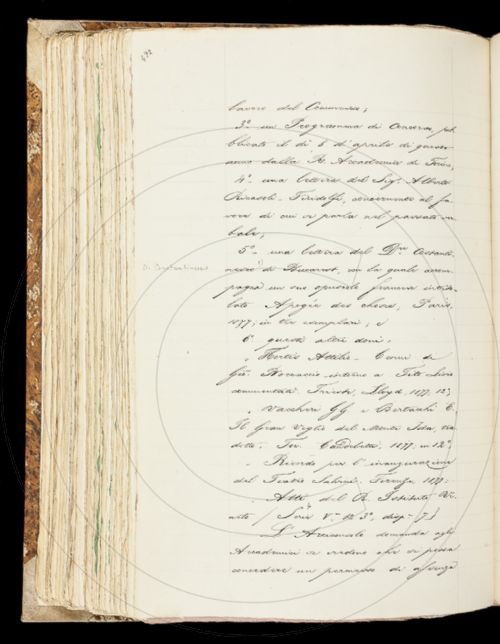 492
lavoro del Commercio;
3º. un Programma di Concorso, pub-
blicato il dì 6 di aprile di quest'
anno dalla R. Accademia di Torino,
4º. una lettera del Sig. Alberto
Ricasoli-Firidolfi, concernente al fa-
vore di cui si parla nel passato ver-
bale;
5º. una lettera del D.
di con la quale accom-
pagna un suo opuscolo francese intito-
lato Apogée des choses, Paris,
1877; in tre esemplari; e
6º questi altri doni:
Hortis Attilio - Cenni di
Gio. Boccaccio intorno a Tito Livio
commentati. Trieste, Lloyd, 1877. 12º;
Vacchera G G e Bertacchi C.
Il Gran Veglio del Monte Ida, tra-
detto. Tor. Candeletti, 1877; in 12º.
Ricordo per l'inaugurazione
del Teatro Salvini. Firenze, 1877:
Atti del R. Istituto Ve-
neto (Serie V. to. 3º, disp. 7.)
L'Arciconsolo domanda agli
Accademici se credono che si possa
concedere un permesso di